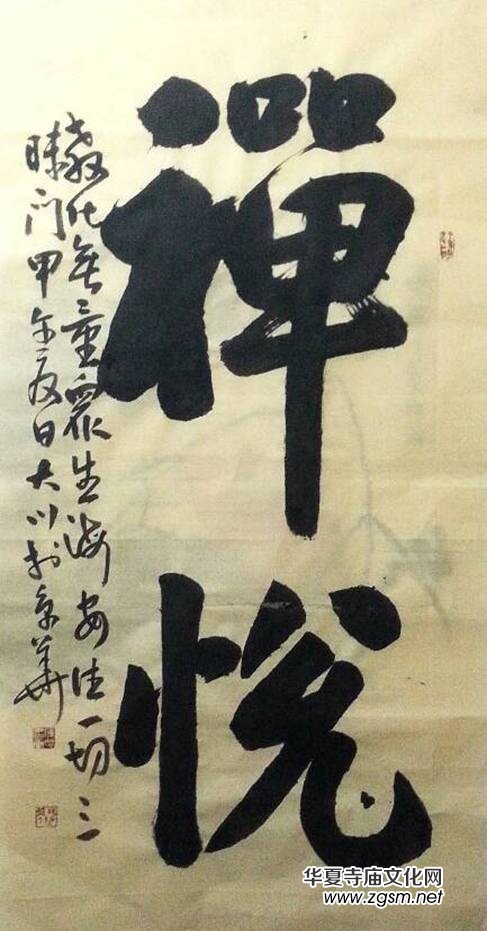 禪悅
教化無量眾生海安住一切三
昧门甲午夏日大川於京華
华夏寺庙文化网
www.zgsm.net